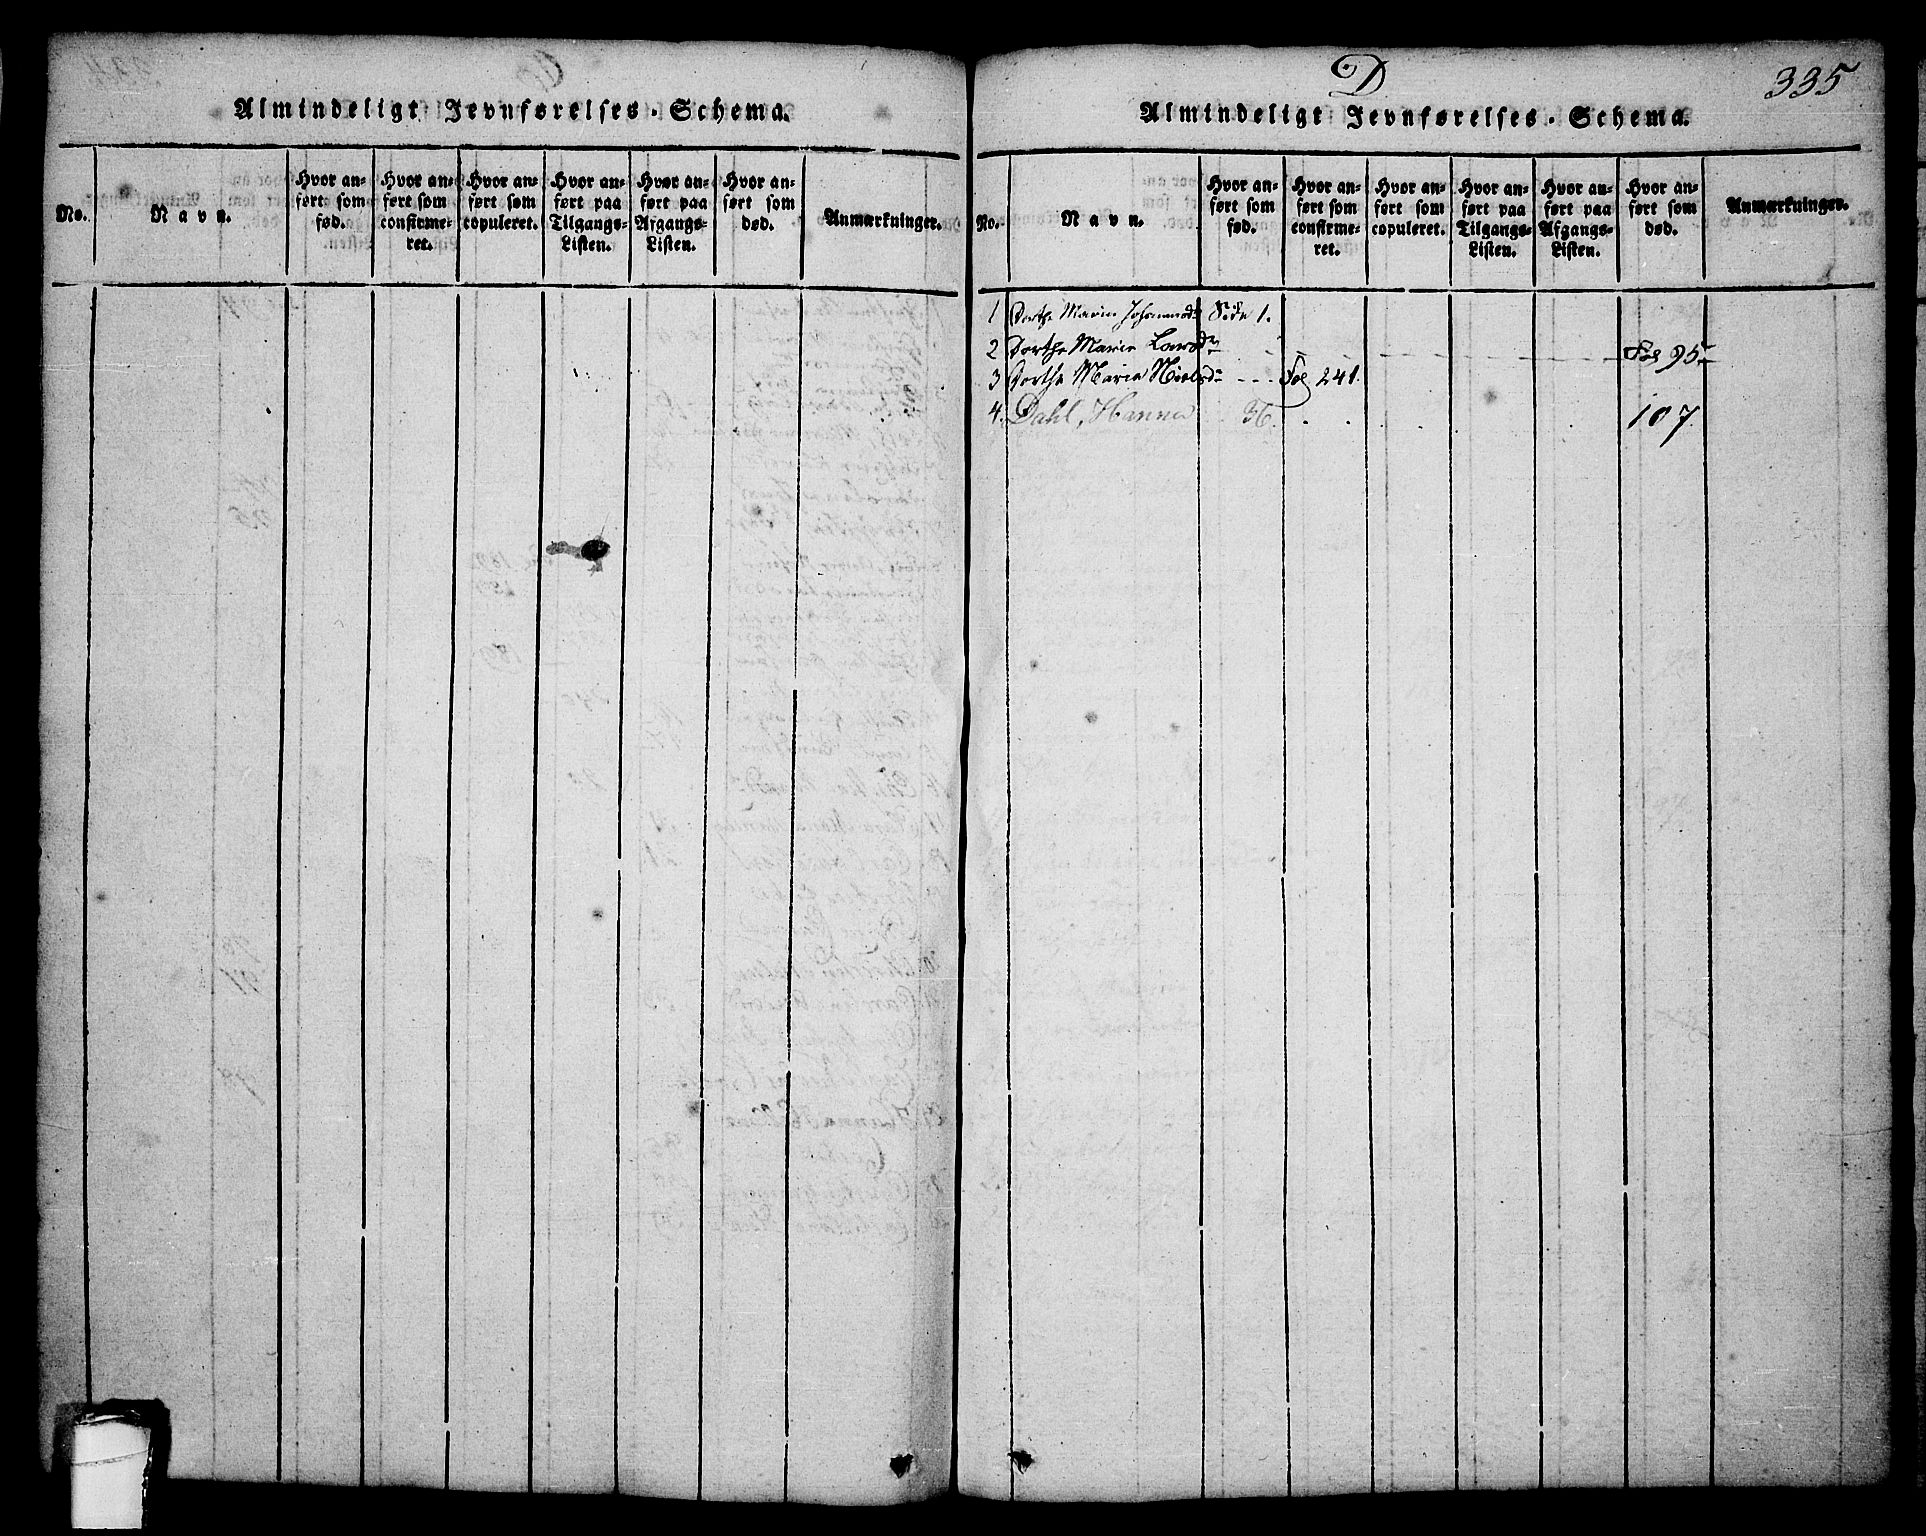 Almindeligt Jevnførelses-Schema.
No.
Navn.
Hvor anført som fød.
Hvor anført som confirmeret.
Hvor anført som copuleret.
Hvor anført paa Tilgangs-Listen.
Hvor anført paa Afgangs-Listen.
Hvor anført som død.
Anmærkninger.
D
335
Almindeligt Jevnførelses-Schema.
No.
Navn.
Hvor anført som fød.
Hvor anført som confirmeret.
Hvor anført som copuleret.
Hvor anført paa Tilgangs-Listen.
Hvor anført paa Afgangs-Listen.
Hvor anført som død.
Anmærkninger.
1 Dorthe Marie Side 1.
2 Dorthe Marie Larsdr Fol 95
3 Dorthe Marie Nielsdr - - - Fol 241.
4. Dahl, Hanna 36. 107